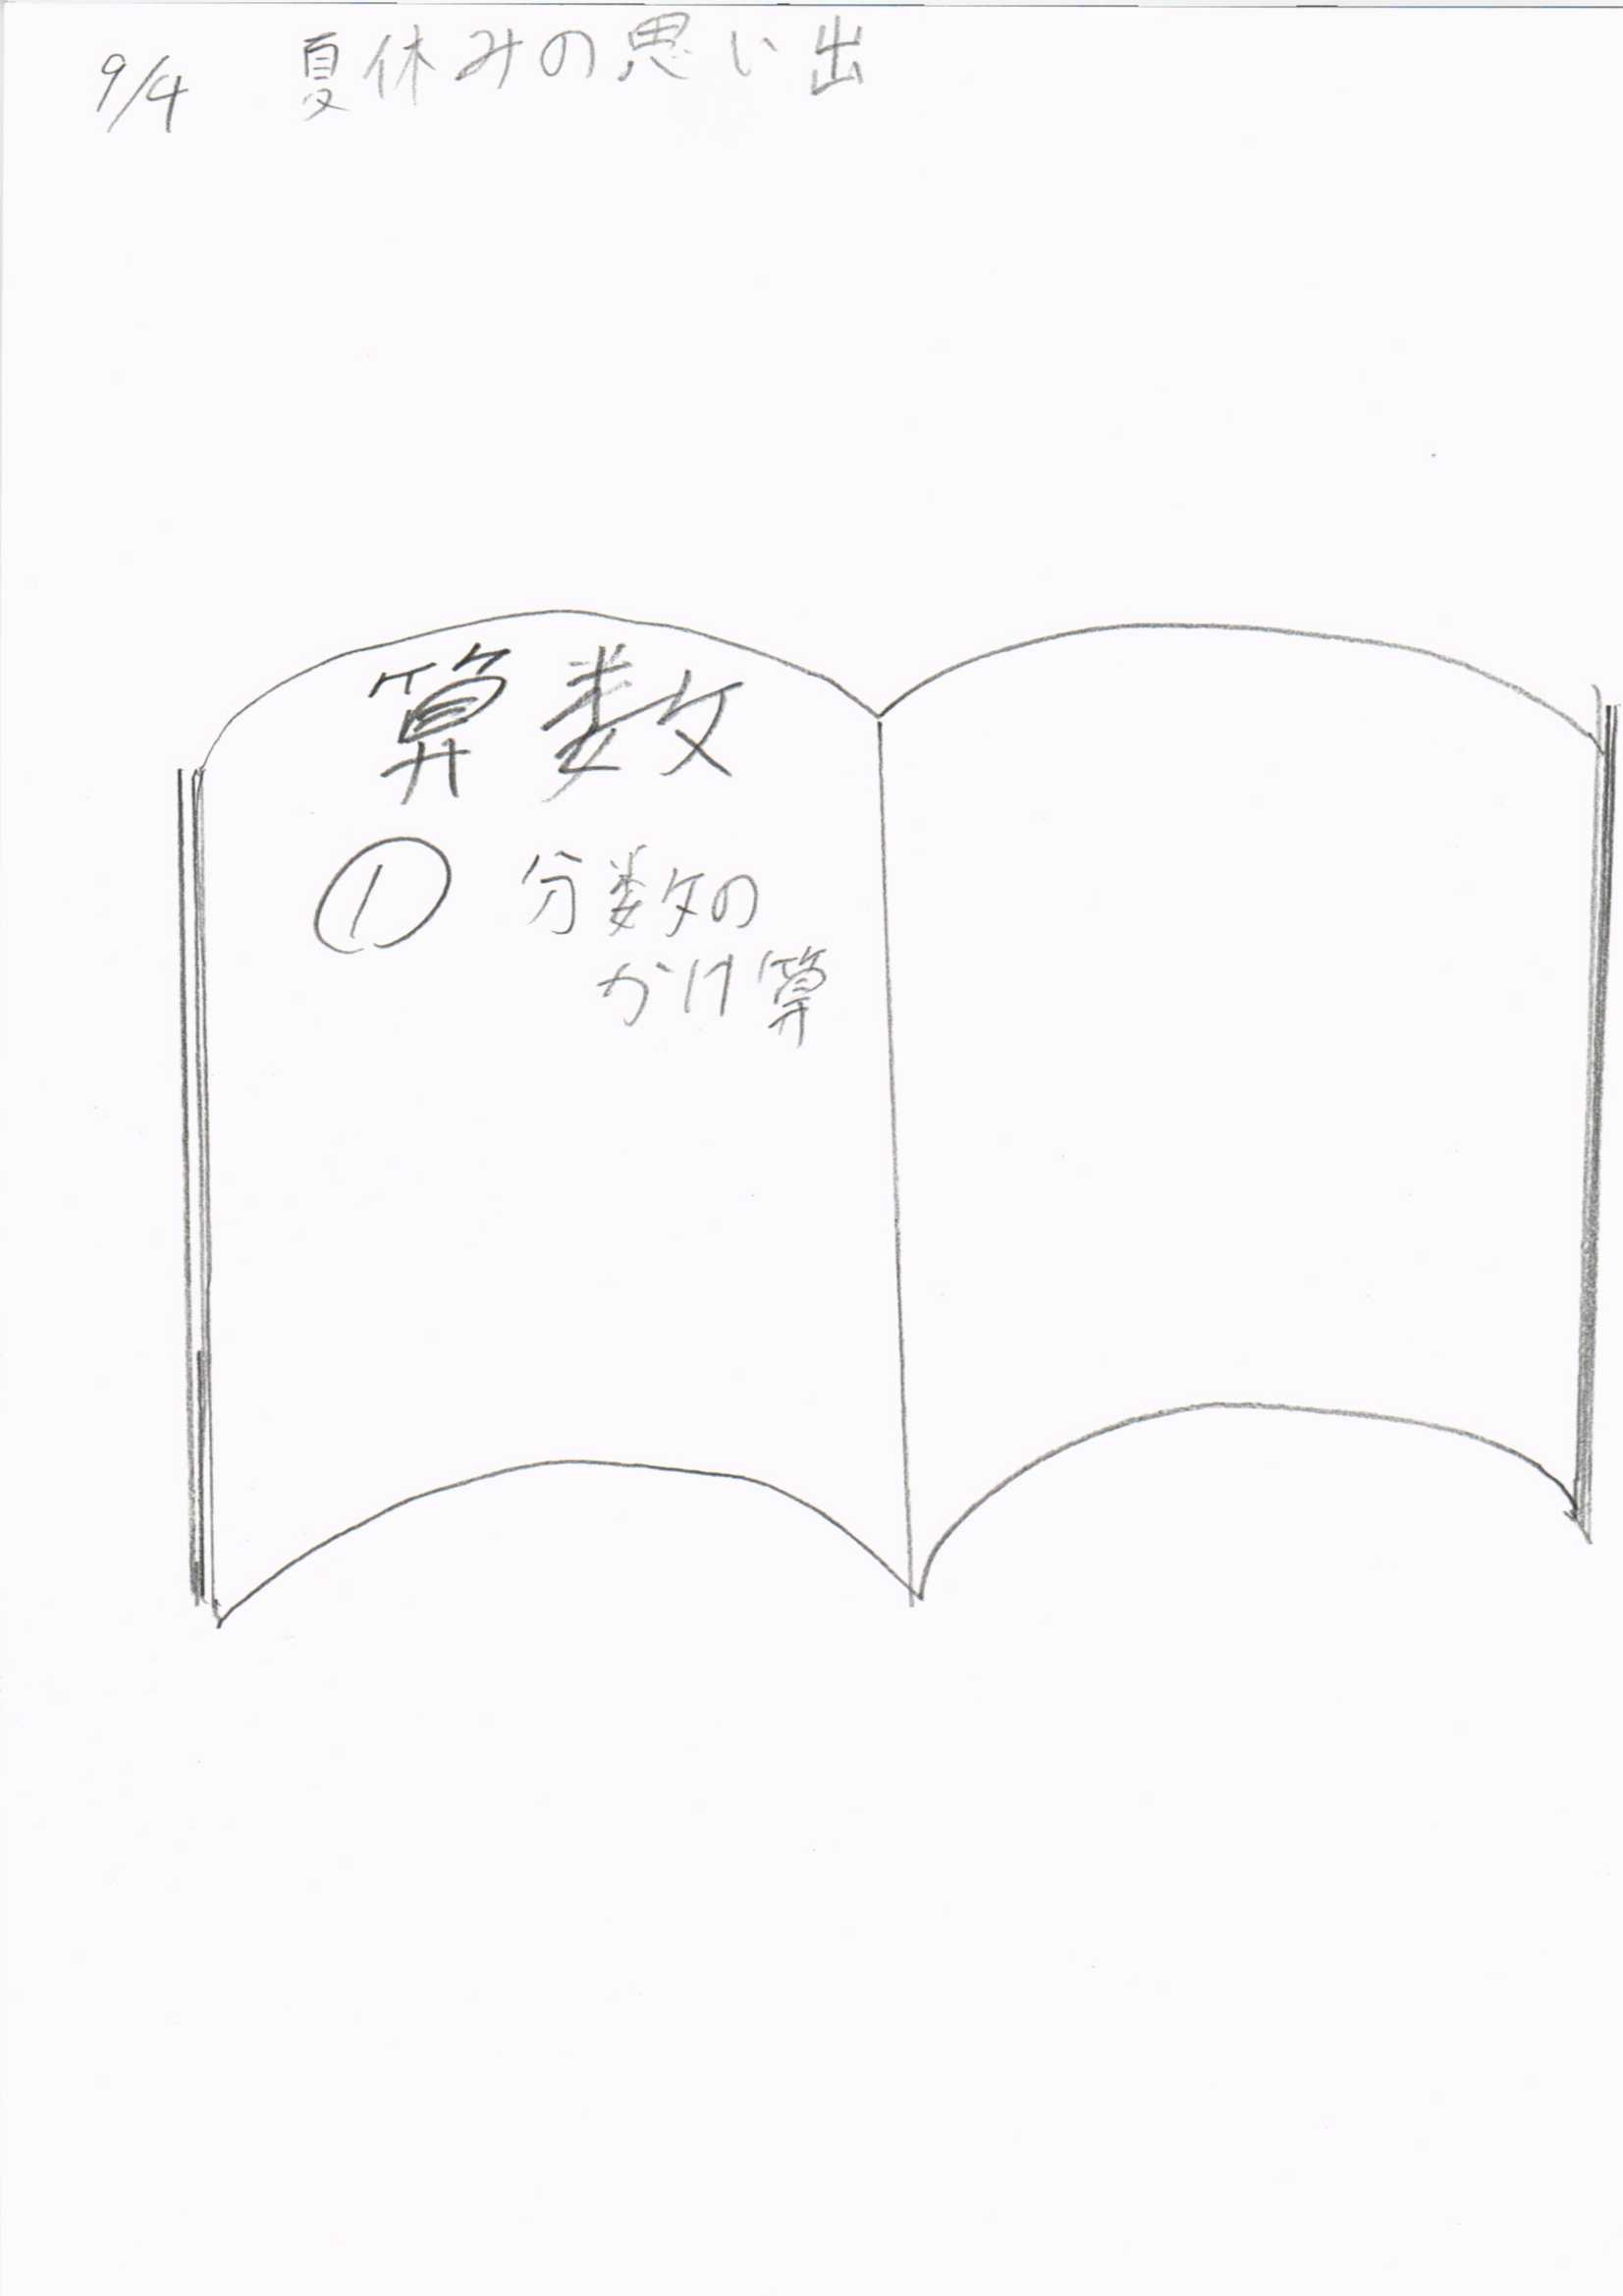 9/4 夏休みの思い出
算数
① 分数の
かけ算